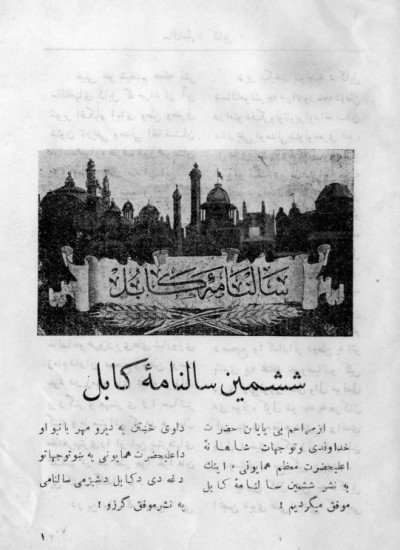 سالنامهٔ کابل
ششمین سالنامهٔ کابل
از مراحم بی پایان حضرت
خداوندی و توجهات شاهانهٔ
اعلیحضرت معظم همایونی ، اینك
به نشر ششمین سالنامهٔ کابل
موفق میگردیم !
داوی څښتن به ډیرو مهر بانیو او
داعلیحضرت همایونی په ښو توجهاتو
دغه دی دکابل دشپږمی سالنامی
په نشر موفق گرزو !
۱